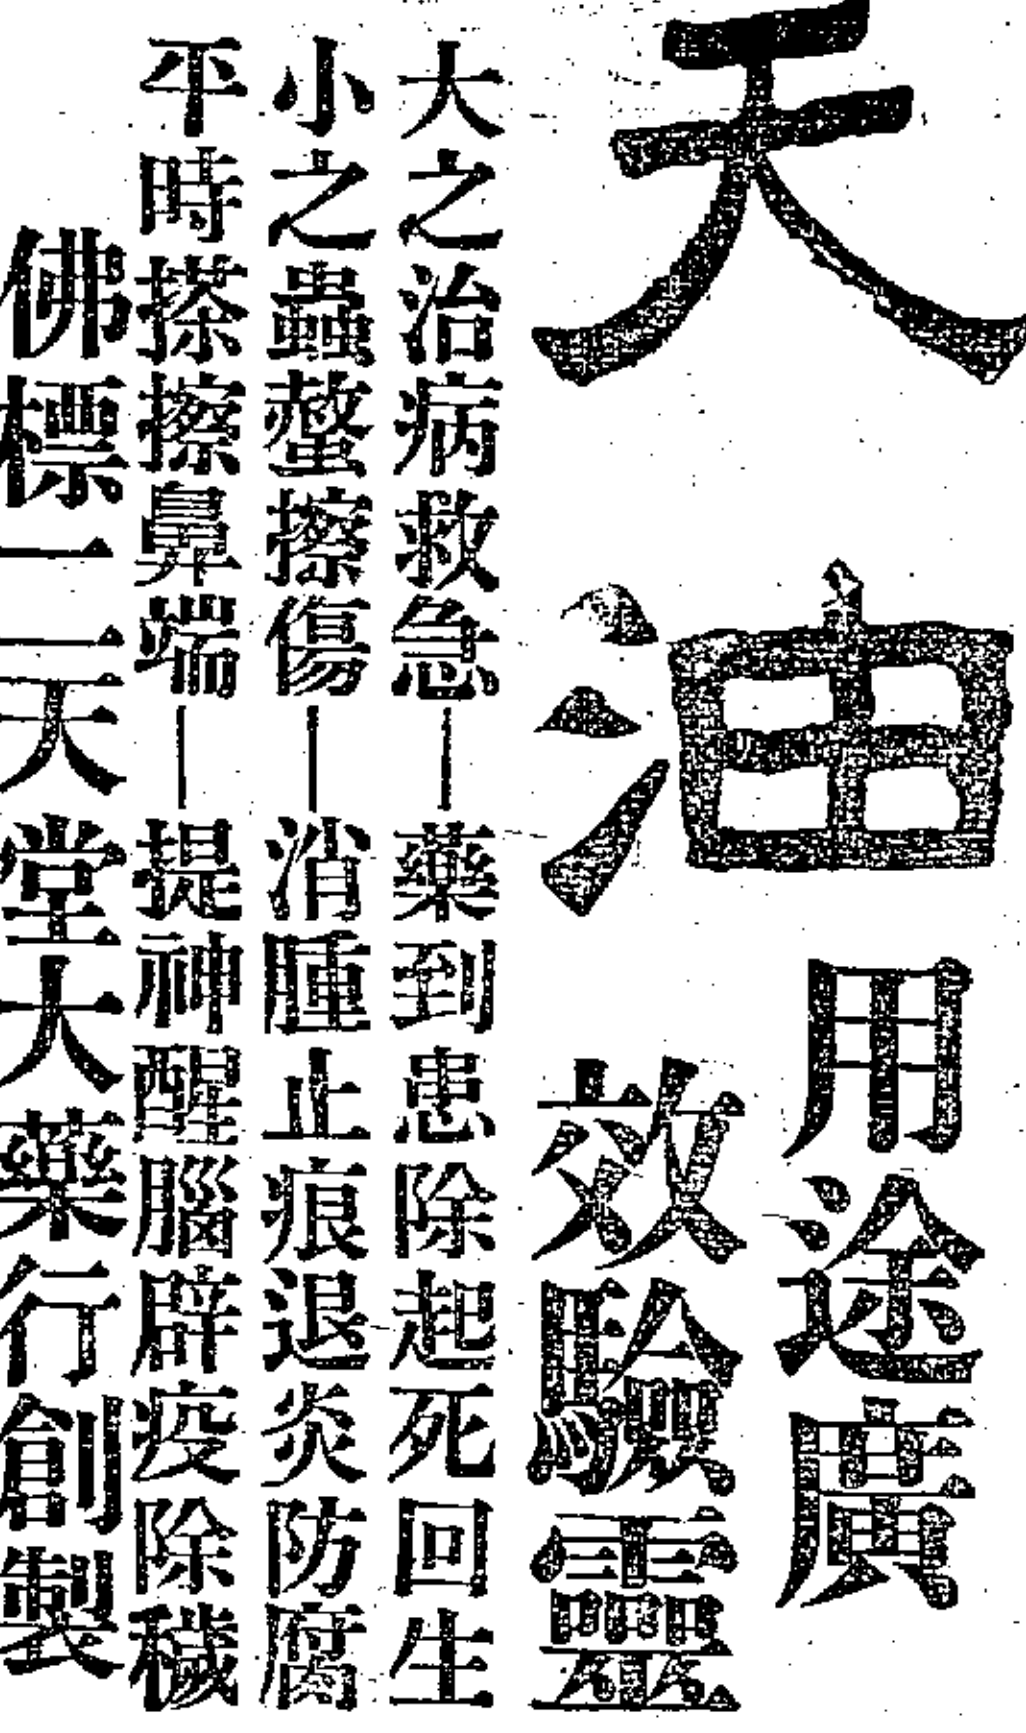 天油
用途廣
效驗靈
大之治病救急—藥到患除起死回生
小之蟲螫擦傷—消腫止痕退炎防腐
平時搽擦鼻端—提神醒腦辟疫除穢
佛標二天堂大藥行創製